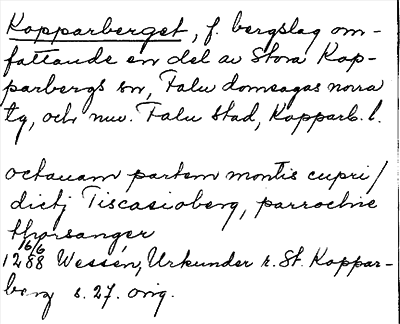 Kopparberget, f. bergslag om-
fattande en del av Stora Kop-
parbergs sn, Falu domsagas norra
tg, och nuv. Falu stad, Kopparb. l.
octauam partem montis cupri/
dictj Tiscasioberg, parrochie
thorsanger
16/6
1288 Wessén, Urkunder r. St. Koppar-
berg s. 27. orig.